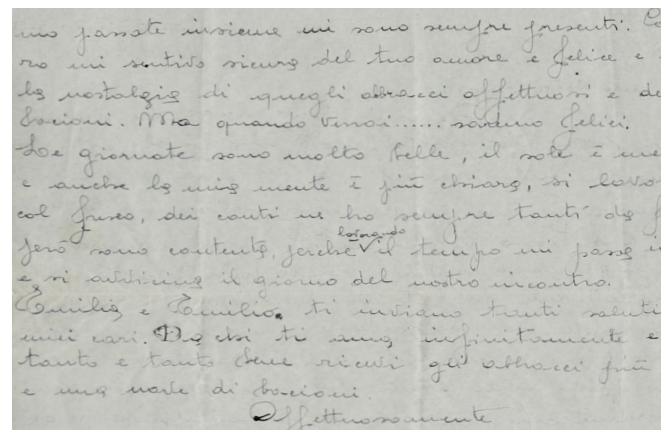 mo passate insieme mi sono sempre presenti. Co
ro mi sentivo sicura del tuo amore e felice e
la nostalgia di quegli abbracci affettuosi e de
bacioni. Ma quando verrai...... saremo felici.
Le giornate sono molto belle, il sole è me
e anche la mia mente è più chiara, si lavo
col fresco, dei conti ne ho sempre tanti da f
però sono contenta, perché lavorando il tempo mi passa in
e si avvicina il giorno del nostro incontro.
Emilia e Emilio. ti inviano tanti saluti
miei cari. Da chi ti ama infinitamente e
tanto e tanto bene ricevi gli abbracci più
e una nave di bacioni.
Affettuosamente